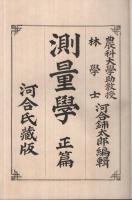 農科大學助教授
林學士 河合鈰太郎編輯
測量學 正篇
河合氏藏版